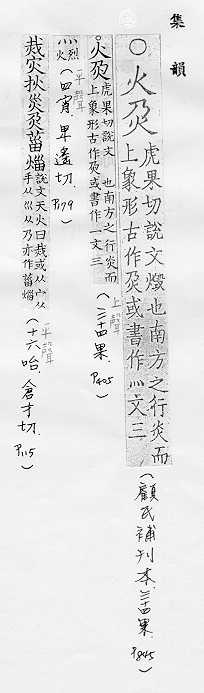 集韻
○火𤆄虎果切說文燬也南方之行炎而
上象形古作𤆄或書作灬文三
(顧氏補刊本.三十四果.P845)
火𤆄虎果切說文 也南方之行炎而
上象形古作𤆄或書作 文三
(三十四果.P405)
上聲
灬烈
平聲
(四宵.卑遙切.P179)
烖灾扻災 菑 說文天火曰烖或从宀火
手从巛从乃亦作菑
(十六咍.倉才切.P115)
平聲